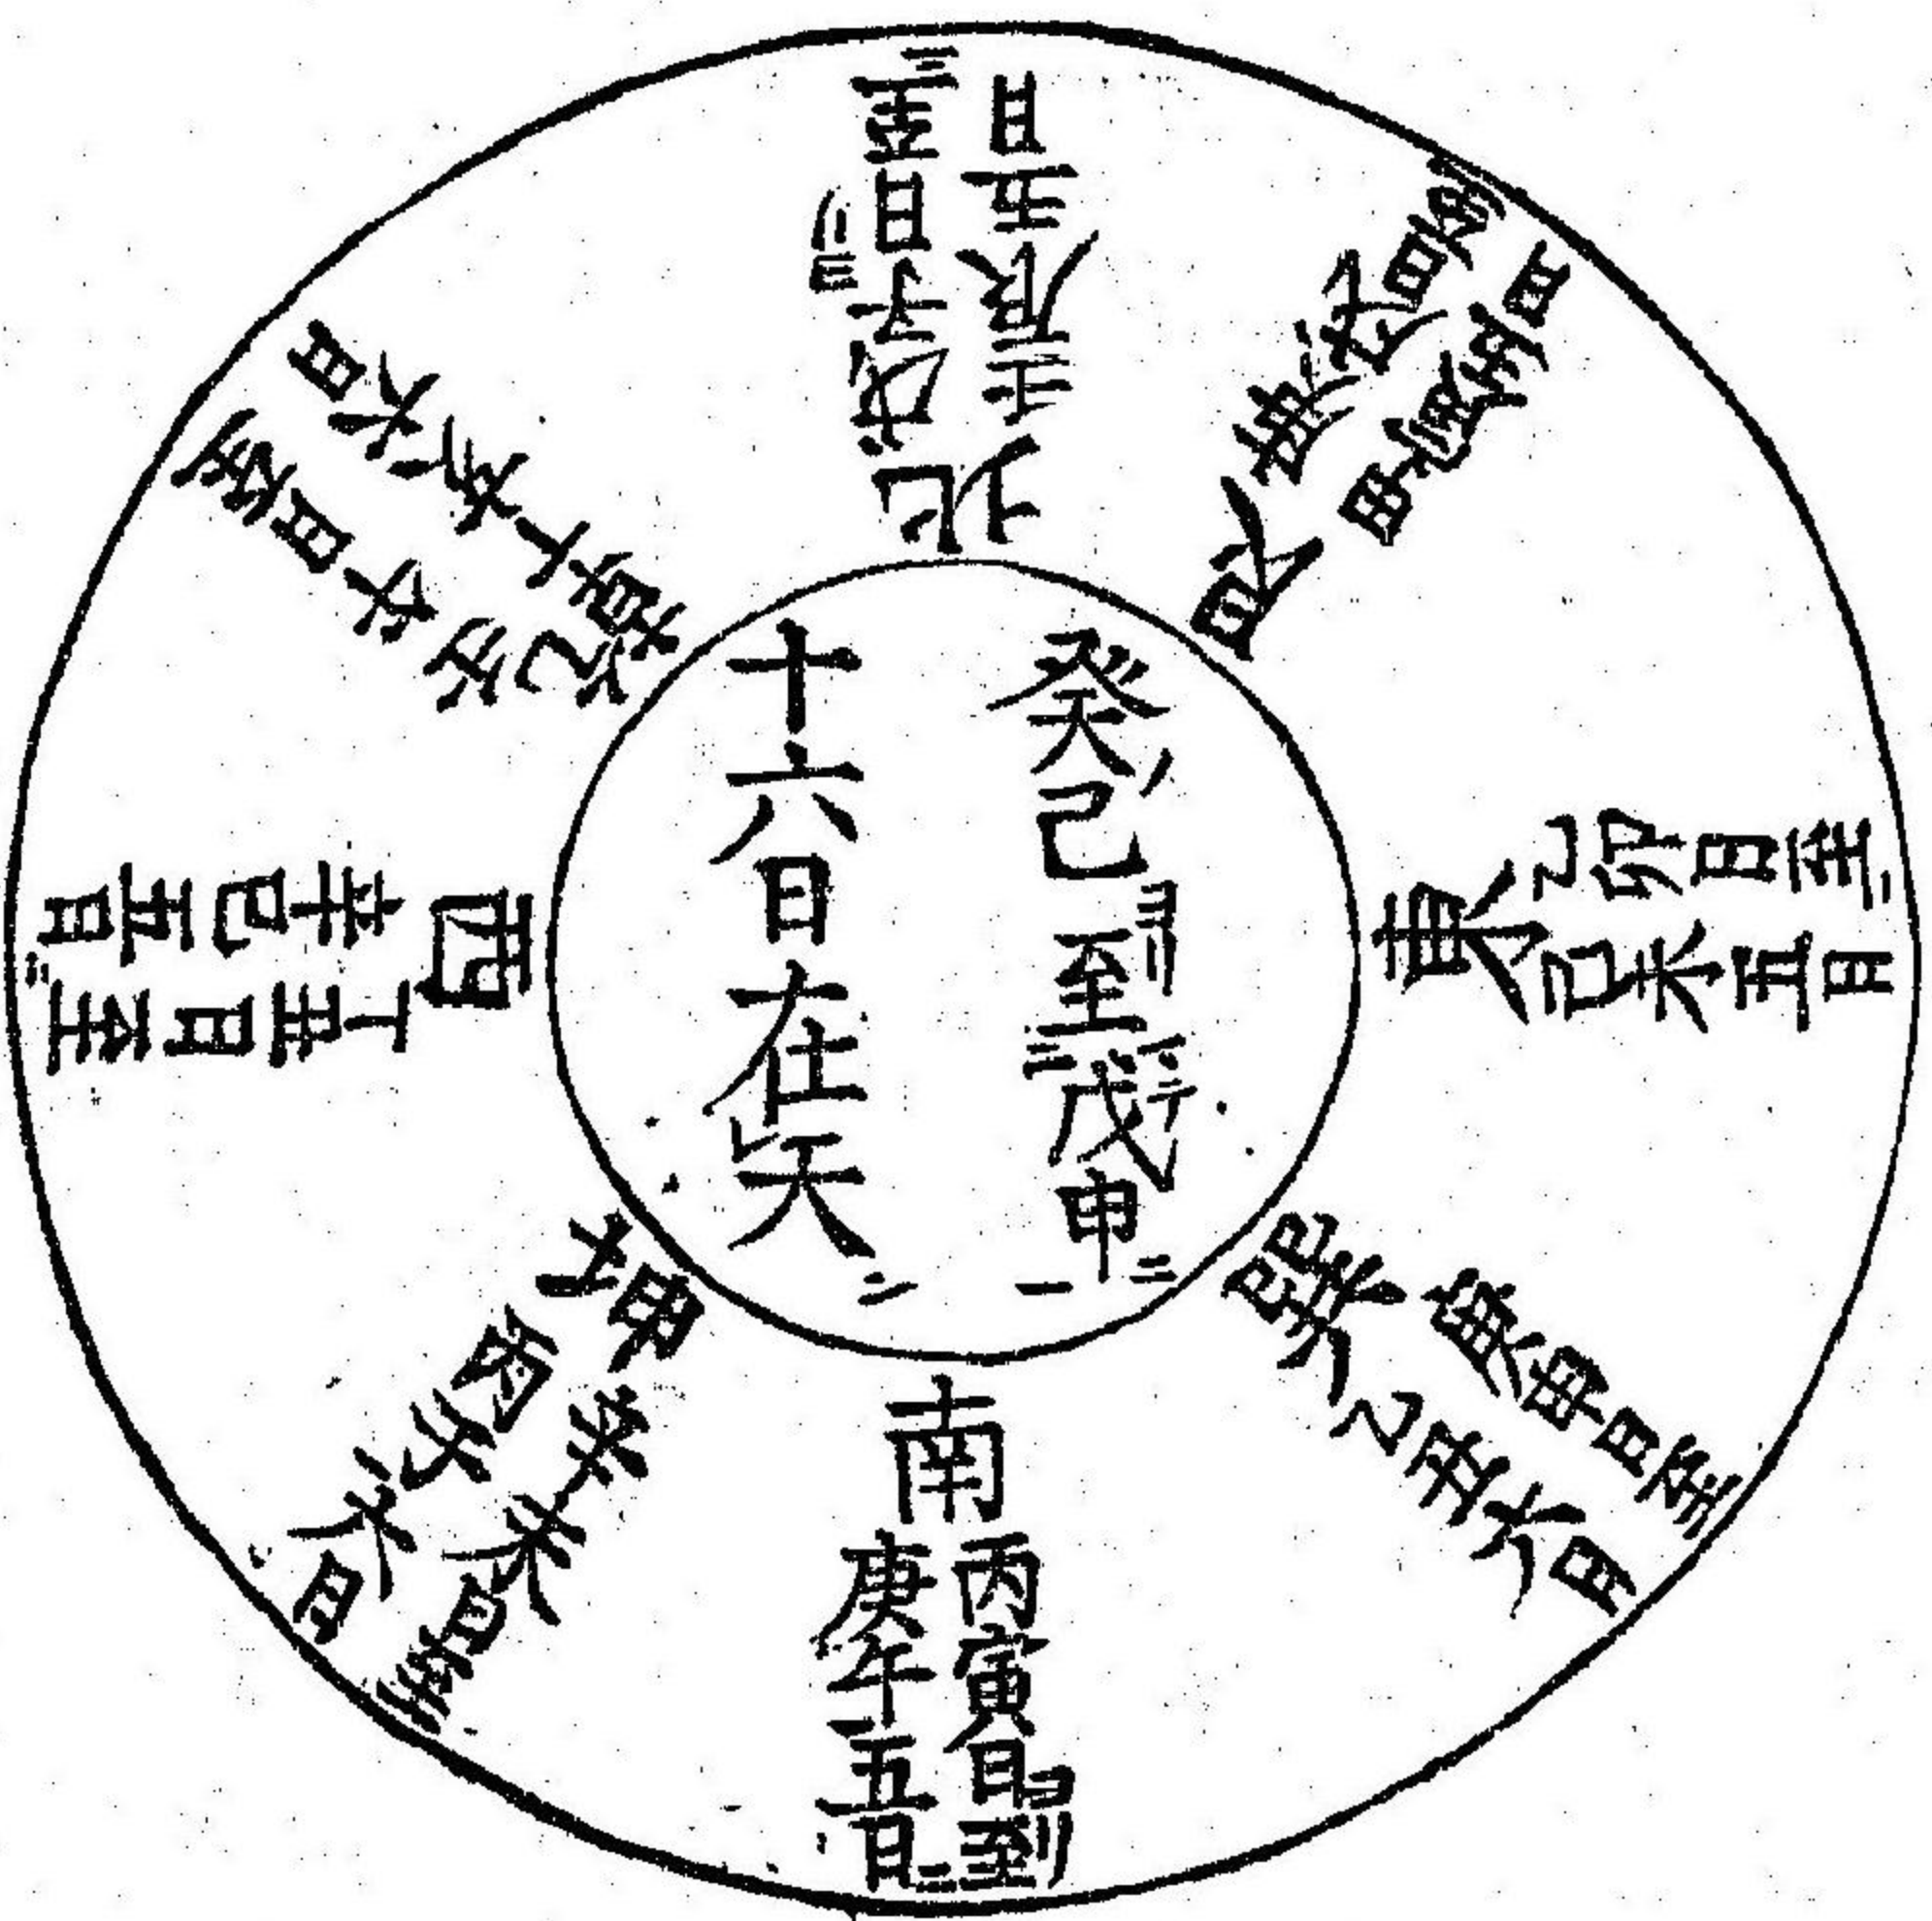 癸巳至戊申
十六日在天
北
戊子日至
壬辰五日
艮
東
乙卯日至
己未五日
巽
庚申日至
乙丑六日
南
丙寅日ヨリ至
庚午五日
坤
辛未日至
丙子六日
西
丁丑日至
辛巳五日
乾
壬午日至
丁亥六日